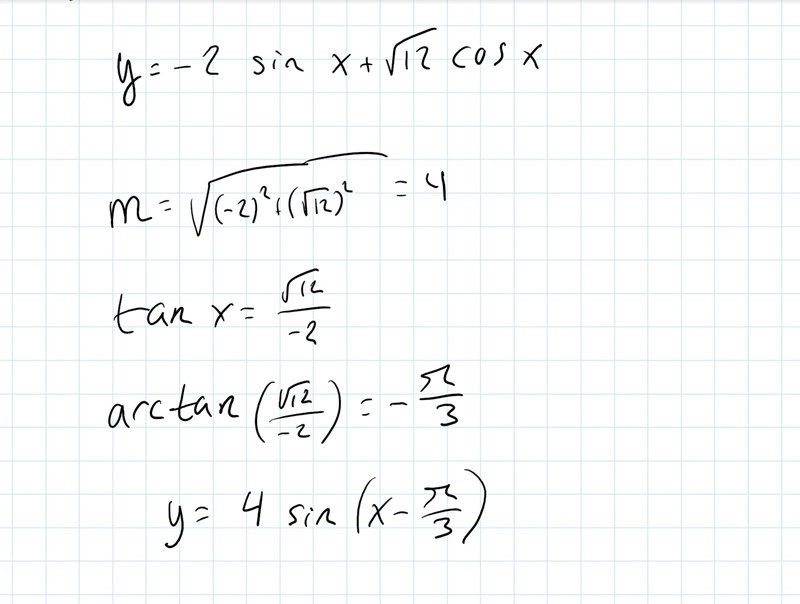 y = -2 sin x + √12 cos x
m = √((-2)² + (√12)²) = 4
tan x = √12/-2
arctan (√12/-2) = -π/3
y = 4 sin (x - π/3)